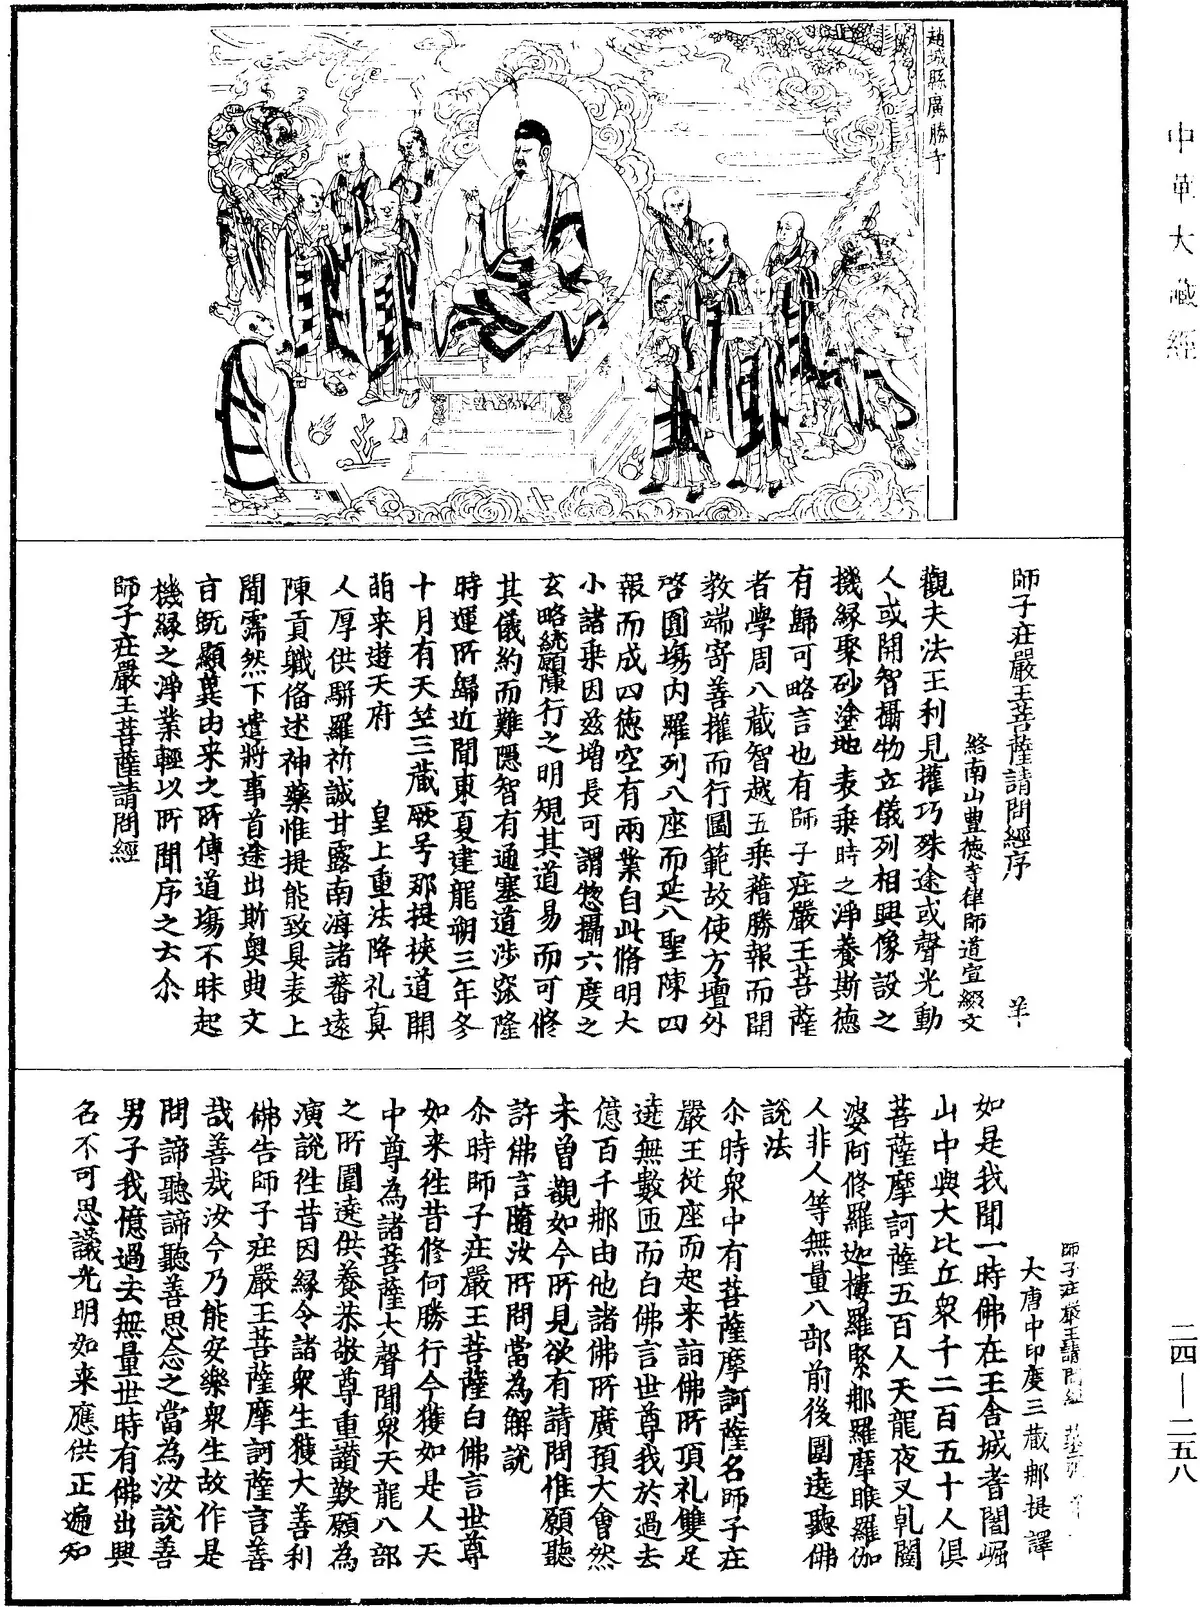 中華大藏經
趙城縣廣勝寺
師子莊嚴王菩薩請問經序 羊
終南山豊德寺律師道宣綴文
觀夫法王利見權巧殊途或聲光動
人或開智攝物立儀列相興像設之
機縁聚砂塗地表乗時之淨養斯德
有歸可略言也有師子莊嚴王菩薩
者學周八藏智越五乗藉勝報而開
教端寄善權而行圖範故使方壇外
啓圓場内羅列八座而延八聖陳四
報而成四德空有兩業自此脩明大
小諸乗因茲增長可謂惣攝六度之
玄略統願隟行之明規其道易而可修
其儀約而難隱智有通塞道涉窊隆
時運所歸近聞東夏建龍朔三年冬
十月有天竺三藏厥号那提挾道開
萌来遊天府 皇上重法降礼真
人厚供駢羅祈誠甘露南海諸蕃遠
陳貢軄俻述神藥惟提能致具表上
聞霈然下遣將事首途出斯奥典文
言既顯異由来之所傳道場不昧起
機縁之淨業輕以所聞序之云尒
師子莊嚴王菩薩請問經
師子莊嚴王請問經
大唐中印度三藏那提譯
如是我聞一時佛在王舍城耆闍崛
山中與大比丘衆千二百五十人俱
菩薩摩訶薩五百人天龍夜叉乹闥
婆阿修羅迦樓羅緊那羅摩睺羅伽
人非人等無量八部前後圍遶聽佛
說法
尒時衆中有菩薩摩訶薩名師子莊
嚴王從座而起来詣佛所頂礼雙足
遶無數匝而白佛言世尊我於過去
億百千那由他諸佛所廣預大會然
未曾覩如今所見欲有請問惟願聽
許佛言隨汝所問當為解說
尒時師子莊嚴王菩薩白佛言世尊
如来徃昔修何勝行今獲如是人天
中尊為諸菩薩大聲聞衆天龍八部
之所圍遶供養恭敬尊重讃歎願為
演說徃昔因縁令諸衆生獲大善利
佛告師子莊嚴王菩薩摩訶薩言善
哉善哉汝今乃能安樂衆生故作是
問諦聽諦聽善思念之當為汝說善
男子我憶過去無量世時有佛出興
名不可思議光明如来應供正遍知
二四—二五八